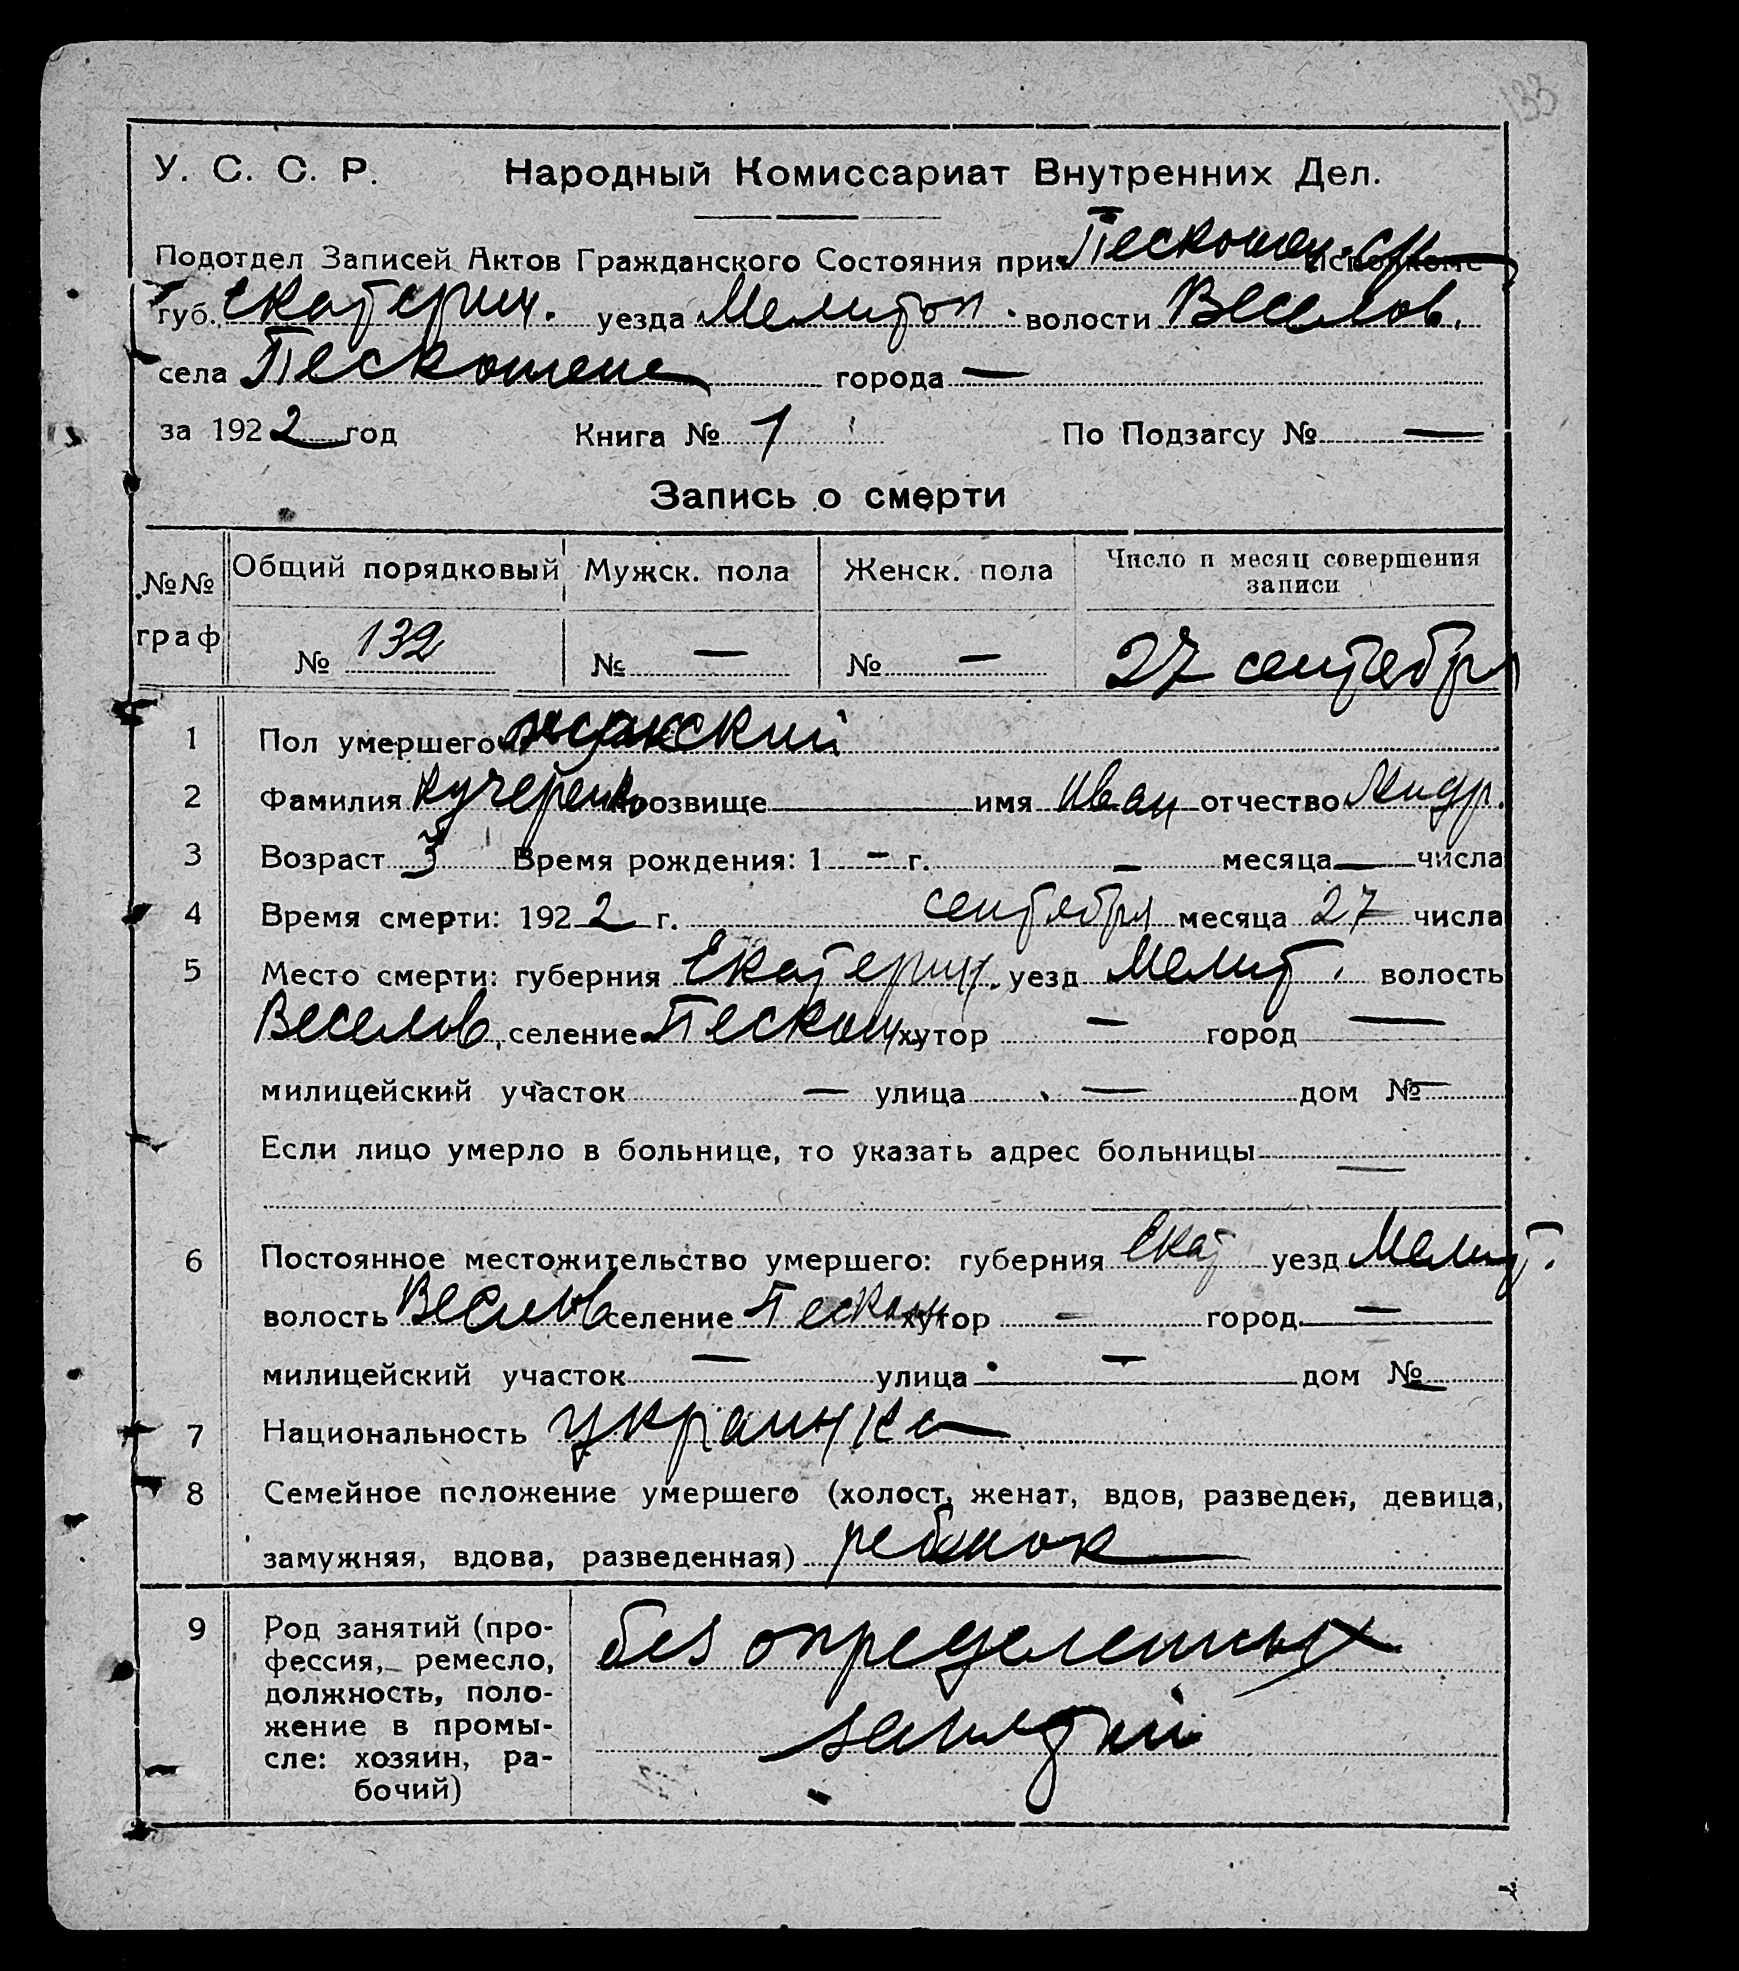 133
У. С. С. Р. Народный Комиссариат Внутренних Дел.
Подотдел Записей Актов Гражданского Состояния при Пескошен.
губ. Екатерин. уезда Мелитоп. волости Веселов.
села Пескошене города —
за 1922 год Книга № 1 По Подзагсу № —
Запись о смерти
№№ граф Общий порядковый Мужск. пола Женск. пола Число и месяц совершения записи
№ 132 № — № — 27 сентября
1 Пол умершего
2 Фамилия Кучеренко прозвище — имя Иван отчество Андр.
3 Возраст 3 Время рождения: 1 — г. — месяца — числа
4 Время смерти: 1922 г. сентября месяца 27 числа
5 Место смерти: губерния Екатерин. уезд Мелит. волость
Веселов. селение Пескош. хутор — город —
милицейский участок — улица — дом № —
Если лицо умерло в больнице, то указать адрес больницы —
6 Постоянное местожительство умершего: губерния Екат уезд Мелит.
волость Веселов селение Пескош. хутор — город —
милицейский участок — улица — дом № —
7 Национальность украинка
8 Семейное положение умершего (холост, женат, вдов, разведен, девица,
замужняя, вдова, разведенная) ребенок
9 Род занятий (про-
фессия, ремесло,
должность, поло-
жение в промы-
сле: хозяин, ра-
бочий)
без определенных
занятий